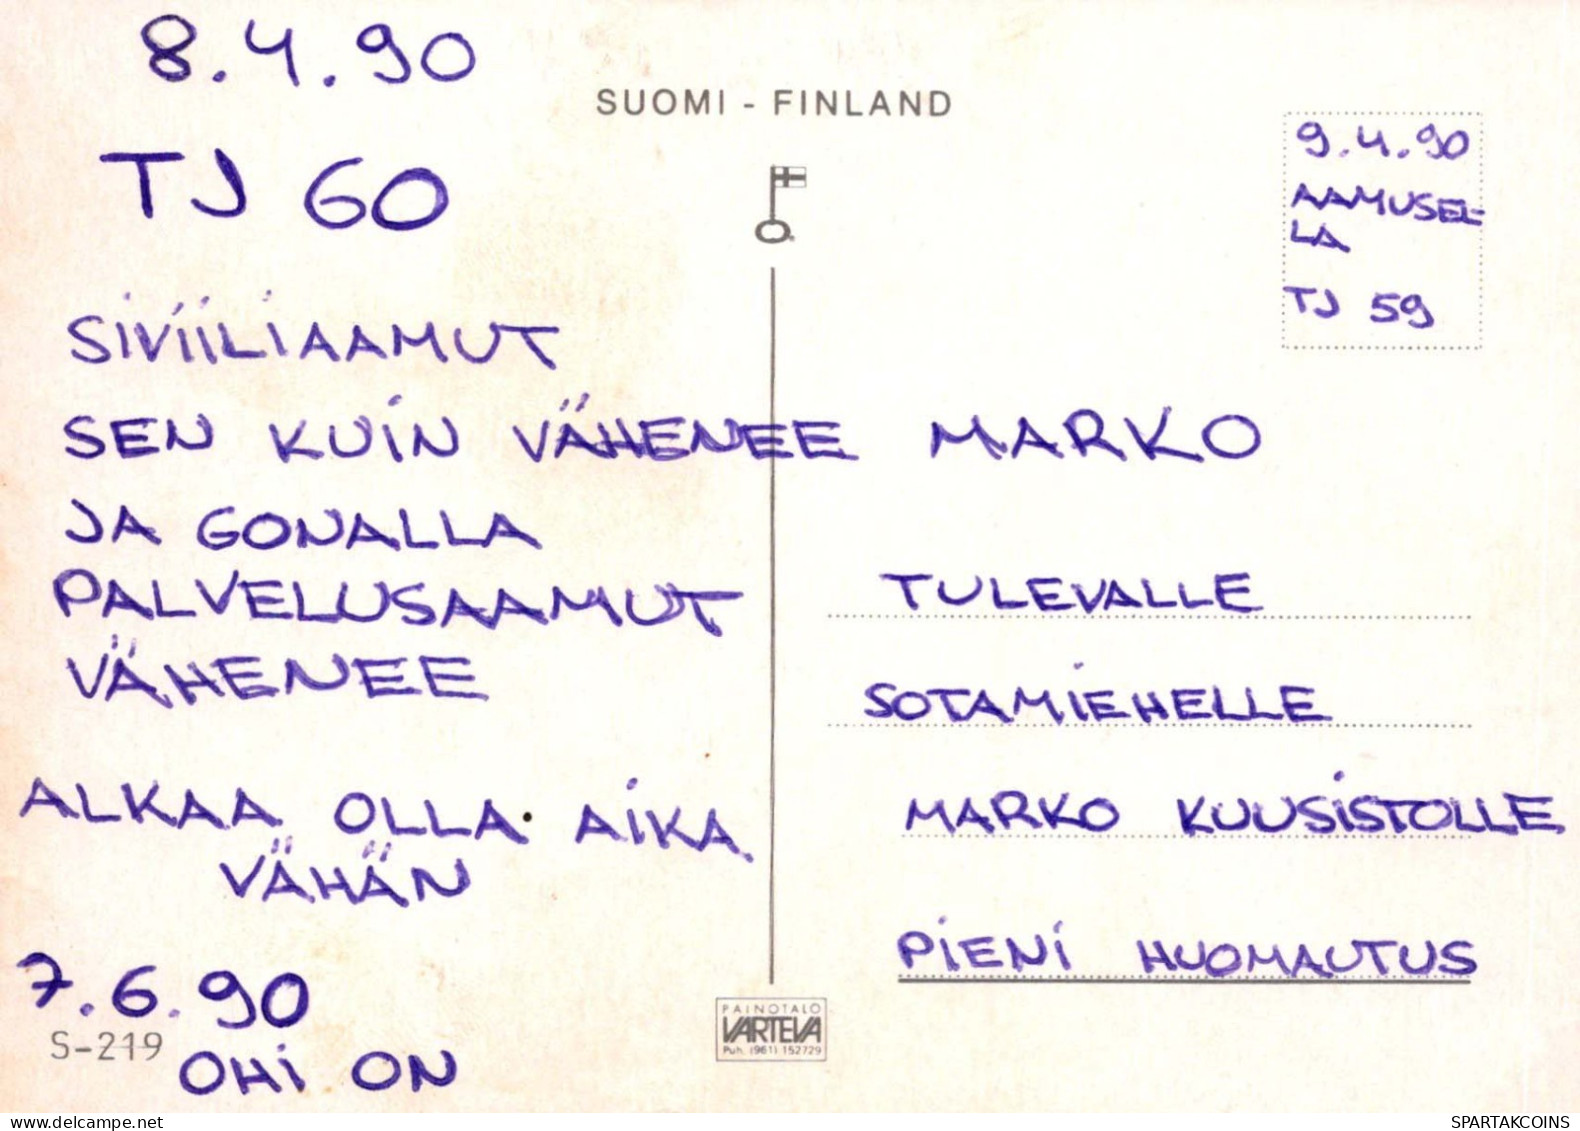 8.4.90
TJ 60
SIVIILIAAMUT
SEN KUIN VÄHENEE
JA GONALLA
PALVELUSAAMUT
VÄHENEE
ALKAA OLLA AIKA
VÄHÄN
7.6.90
S-219
OHI ON
SUOMI - FINLAND
9.4.90
AAMUSEL-
LA
TJ 59
MARKO
TULEVALLE
SOTAMIEHELLE
MARKO KUUSISTOLLE
PIENI HUOMAUTUS
PAINOTALO
VARTEVA
Puh. (961) 152729
SPARTAKCOINS